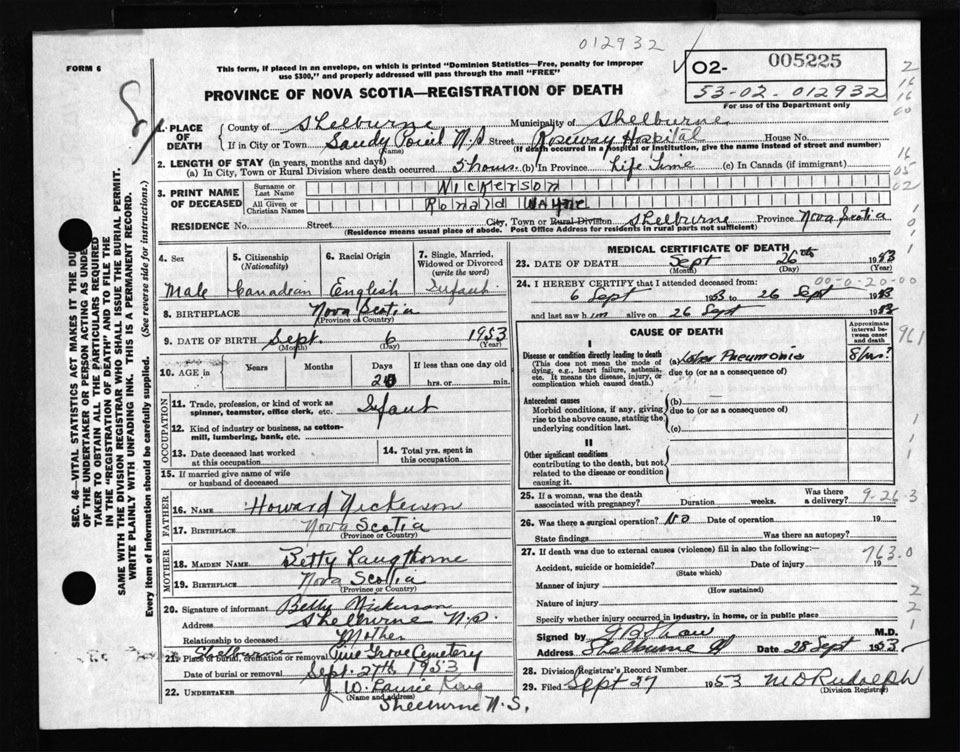 012932
FORM 6
This form, if placed in an envelope, on which is printed "Dominion Statistics—Free, penalty for improper
use $300," and properly addressed will pass through the mail "FREE"
O2- 005225
53-02-012932
For use of the Department only
PROVINCE OF NOVA SCOTIA—REGISTRATION OF DEATH
1. PLACE OF DEATH County of Shelburne Municipality of Shelburne
If in City or Town Sandy Point N.S Street Roseway Hospital House No.
(Name) (If death occurred in a hospital or institution, give the name instead of street and number)
2. LENGTH OF STAY (in years, months and days)
(a) In City, Town or Rural Division where death occurred 5 hours (b) In Province Life Time (c) In Canada (if immigrant)
3. PRINT NAME OF DECEASED Surname or Last Name Nickerson
All Given or Christian Names Ronald Wayne
RESIDENCE No. Street City, Town or Rural Division Shelburne Province Nova Scotia
(Residence means usual place of abode. Post Office Address for residents in rural parts not sufficient)
4. Sex 5. Citizenship (Nationality) 6. Racial Origin 7. Single, Married, Widowed or Divorced (write the word)
Male Canadian English Infant
8. BIRTHPLACE Nova Scotia
(Province or Country)
9. DATE OF BIRTH Sept. 6 1953
(Month) (Day) (Year)
10. AGE in Years Months Days If less than one day old
20 hrs. or min.
OCCUPATION
11. Trade, profession, or kind of work as spinner, teamster, office clerk, etc. Infant
12. Kind of industry or business, as cotton-mill, lumbering, bank, etc.
13. Date deceased last worked at this occupation 14. Total yrs. spent in this occupation
15. If married give name of wife or husband of deceased
FATHER
16. NAME Howard Nickerson
17. BIRTHPLACE Nova Scotia
(Province or Country)
MOTHER
18. MAIDEN NAME Betty Langthorne
19. BIRTHPLACE Nova Scotia
(Province or Country)
20. Signature of informant Betty Nickerson
Address Shelburne N.S.
Relationship to deceased Mother
21. Place of burial, cremation or removal Shelburne Pine Grove Cemetery
Date of burial or removal Sept. 27th, 1953
22. UNDERTAKER J. W. Laurie
(Name and address)
Shelburne N.S.
MEDICAL CERTIFICATE OF DEATH
23. DATE OF DEATH Sept 26th 1953
(Month) (Day) (Year)
24. I HEREBY CERTIFY that I attended deceased from: 00-0-20-00
6 Sept 1953 to 26 Sept 1953
and last saw him alive on 26 Sept 1953
CAUSE OF DEATH
Approximate interval between onset and death
I
Disease or condition directly leading to death (a) Lobar Pneumonia 8 hrs?
(This does not mean the mode of dying, e.g., heart failure, asthenia, etc. It means the disease, injury, or complication which caused death.)
due to (or as a consequence of)
Antecedent causes (b) —
Morbid conditions, if any, giving rise to the above cause, stating the underlying condition last.
due to (or as a consequence of)
(c)
II
Other significant conditions
contributing to the death, but not related to the disease or condition causing it.
25. If a woman, was the death associated with pregnancy? Duration weeks. Was there a delivery? 9-26-3
26. Was there a surgical operation? No Date of operation 19
State findings Was there an autopsy?
27. If death was due to external causes (violence) fill in also the following:— 763.0
Accident, suicide or homicide? Date of injury 19
(State which)
Manner of injury
(How sustained)
Nature of injury
Specify whether injury occurred in industry, in home, or in public place
Signed by M.D.
Address Shelburne Date 28 Sept 1953
28. Division Registrar's Record Number
29. Filed Sept 27 1953 M D Rudolph
(Division Registrar)
SEC. 46—VITAL STATISTICS ACT MAKES IT THE DUTY
OF THE UNDERTAKER OR PERSON ACTING AS UNDER-
TAKER TO OBTAIN ALL THE PARTICULARS REQUIRED
IN THE "REGISTRATION OF DEATH" AND TO FILE THE
SAME WITH THE DIVISION REGISTRAR WHO SHALL ISSUE THE BURIAL PERMIT.
WRITE PLAINLY WITH UNFADING INK. THIS IS A PERMANENT RECORD.
Every item of information should be carefully supplied. (See reverse side for instructions.)